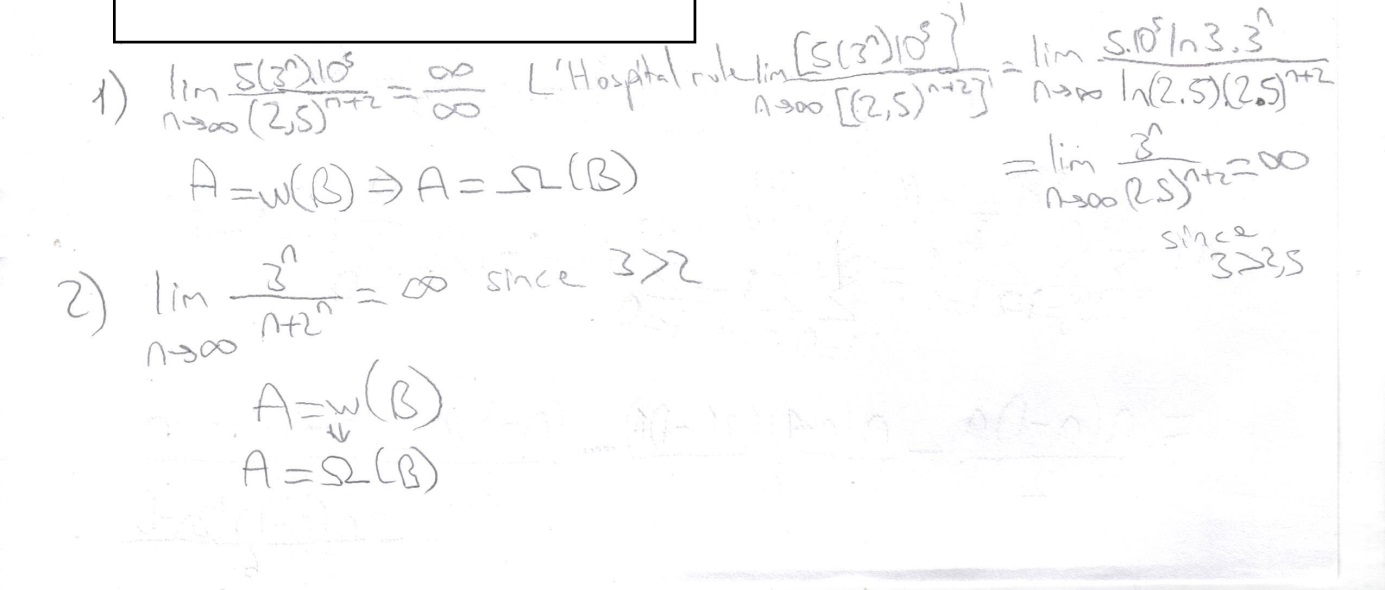 1) lim n→∞ 5(3^n).10^5 / (2,5)^{n+2} = ∞/∞ L'Hospital rule lim n→∞ [5(3^n)10^5]' / [(2,5)^{n+2}]' = lim n→∞ 5.10^5 ln3.3^n / ln(2.5)(2.5)^{n+2}
= lim n→∞ 3^n / (2.5)^{n+2} = ∞
A = w(B) ⇒ A = Ω(B)
since
3>2,5
2) lim n→∞ 3^n / n+2^n = ∞ since 3>2
A = w(B)
⇓
A = Ω(B)